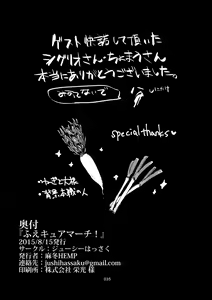 ゲスト快諾して頂いた
シゲリオさん・ちにまうさん
本当にありがとうございました。
special thanks
・ねぎと大根
奥付
『ふえキュアマーチ！』
2015/8/15発行
サークル：ジューシーはっさく
発行者：麻冬HEMP
連絡先：jushihassaku@gmail.com
印刷所：株式会社 栄光 様